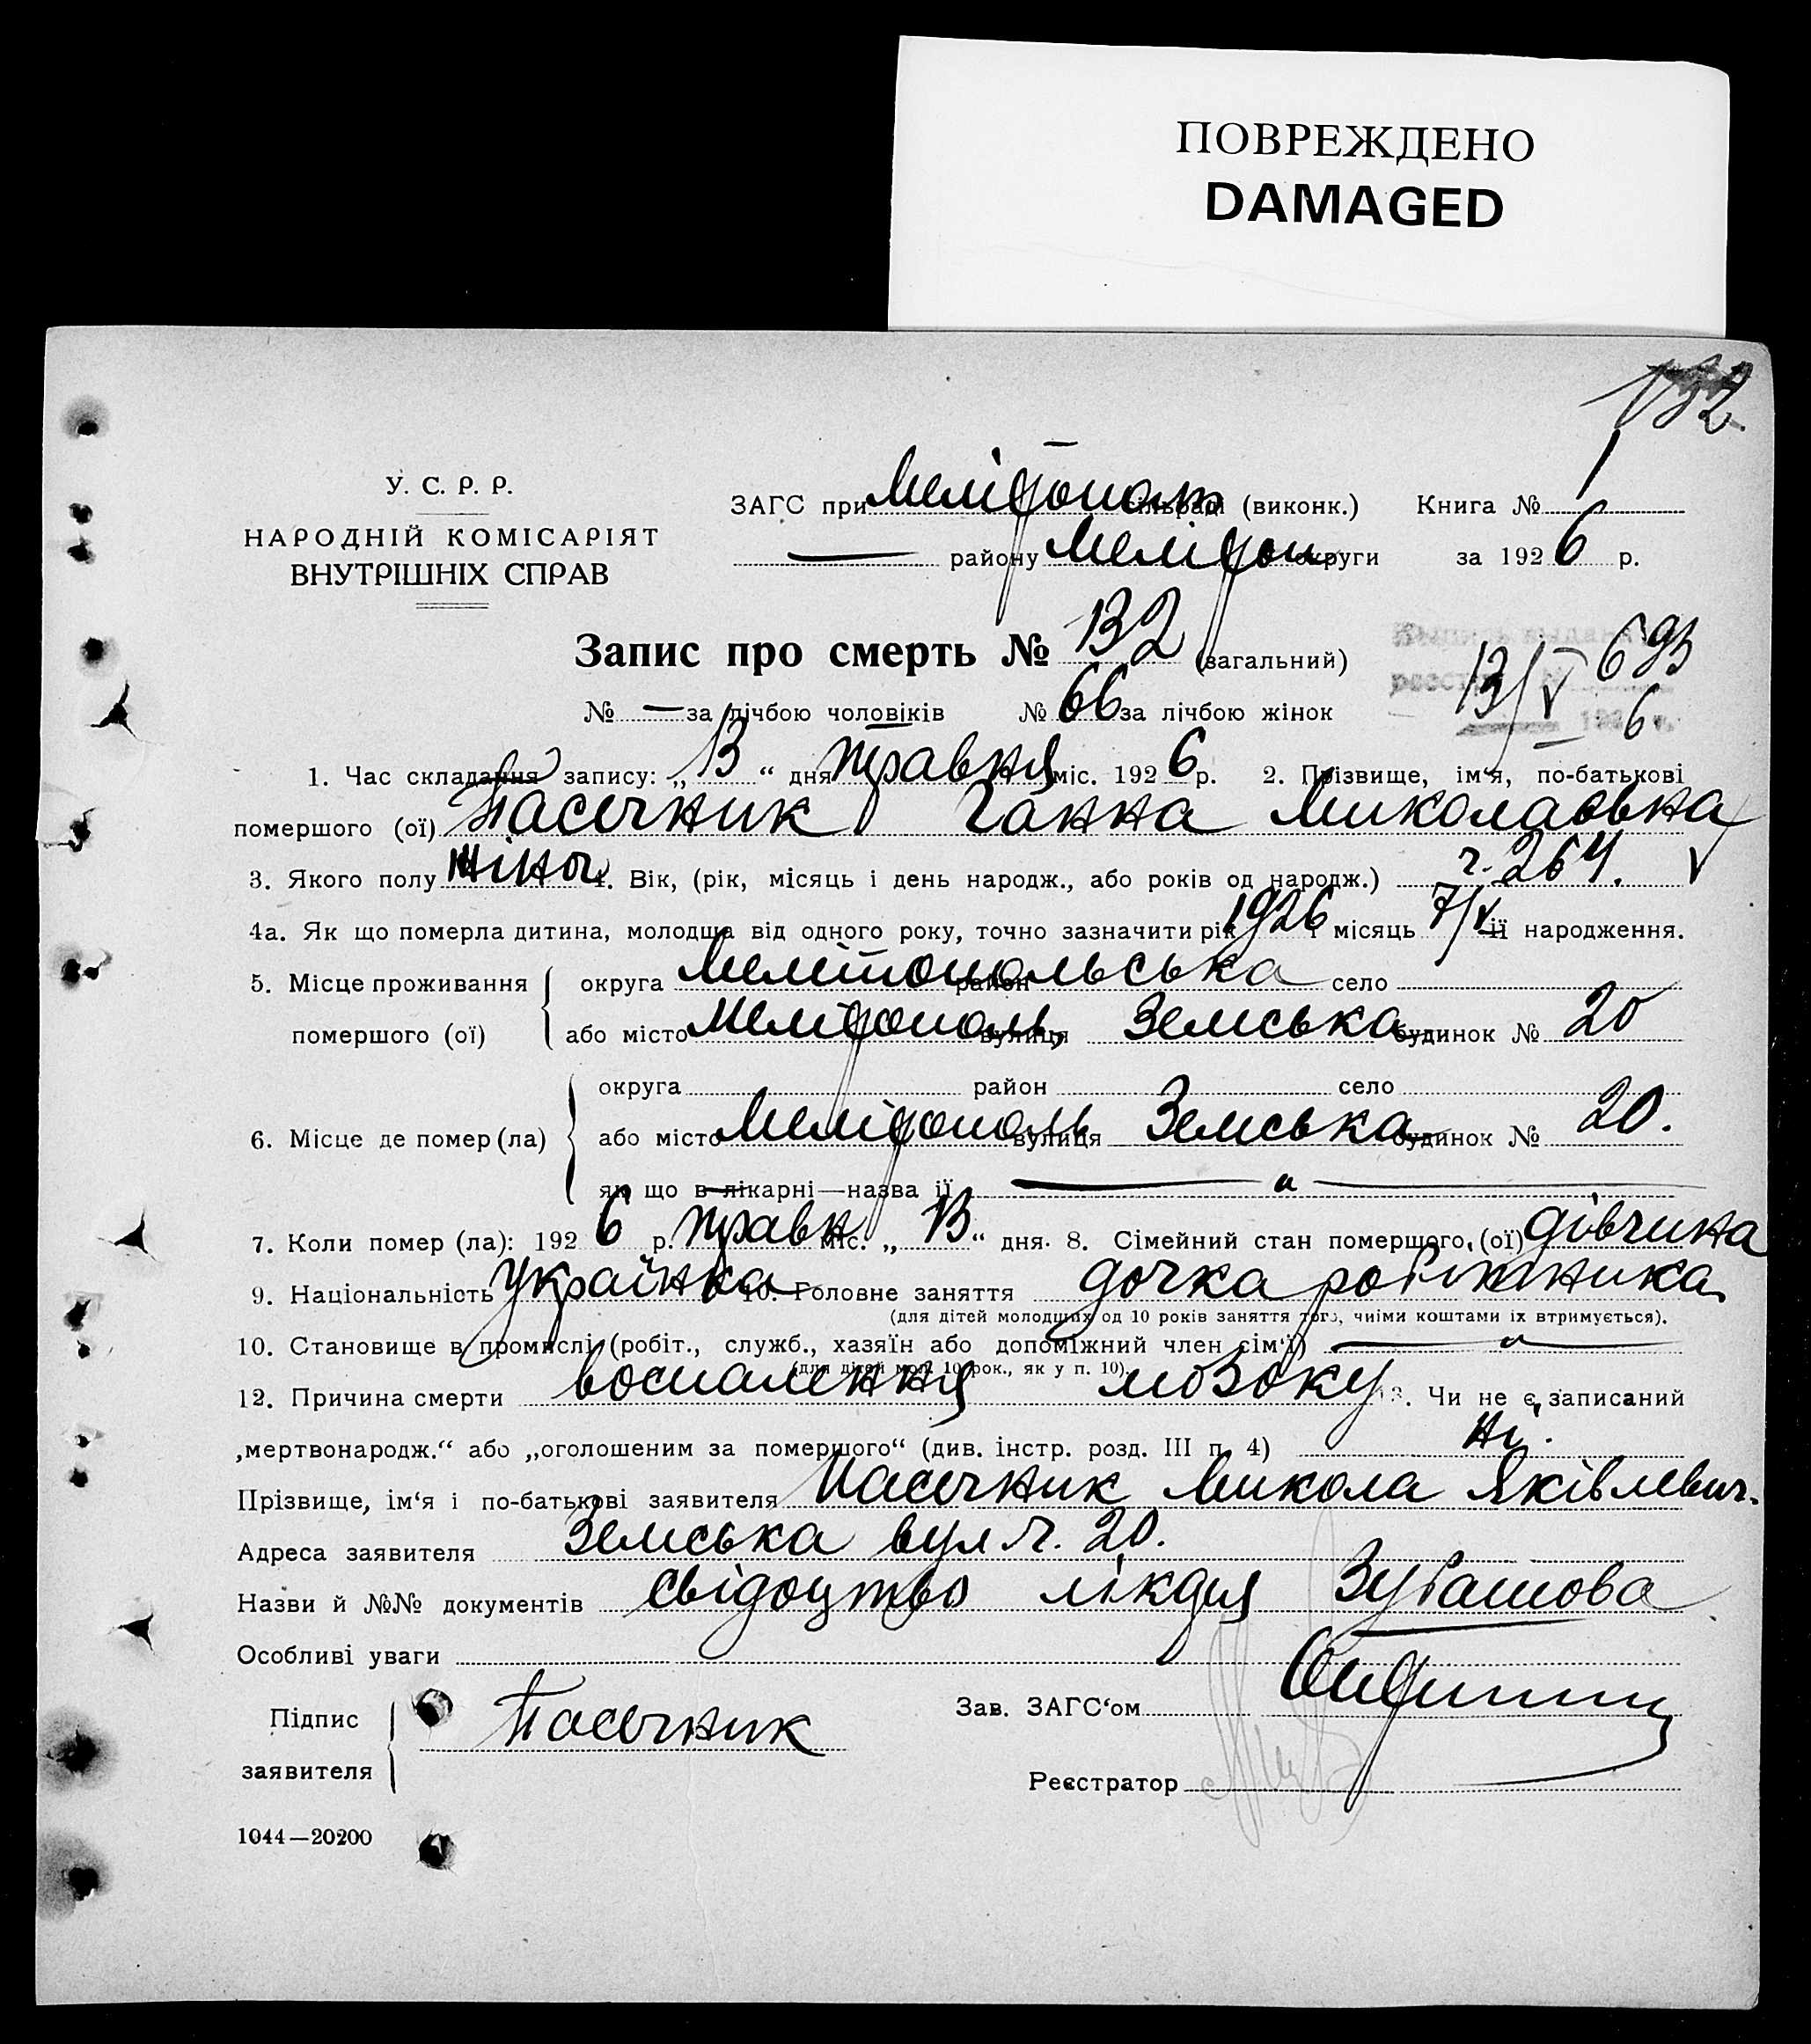 ПОВРЕЖДЕНО
DAMAGED
132
У. С. Р. Р.
НАРОДНІЙ КОМІСАРІЯТ
ВНУТРІШНІХ СПРАВ
ЗАГС при Мелітопольс (виконк.) Книга № 1
— району Мелітоп округи за 1926 р.
Запис про смерть № 132 (загальний)
№ — за лічбою чоловіків № 66 за лічбою жінок
13/V 693
6
1. Час складання запису: „13“ дня травня міс. 1926 р. 2. Прізвище, ім'я, по-батькові
помершого (ої) Пасечник Ганна Миколаовна
3. Якого полу жіноч 4. Вік, (рік, місяць і день народж., або років од народж.)
4а. Як що померла дитина, молодша від одного року, точно зазначити рік 1926 і місяць 7/V її народження.
5. Місце проживання помершого (ої) округа Мелітопольська район село
або місто Мелітополь, вулиця Земська будинок № 20
6. Місце де помер (ла) округа район село
або місто Мелітополь вулиця Земська будинок № 20.
як що в лікарні—назва її — „ —
7. Коли помер (ла): 1926 р. травн. міс. „13“ дня. 8. Сімейний стан помершого, (ої) дівчина
9. Національність Українка 10. Головне заняття дочка робітника
(для дітей молодших од 10 років заняття того, чиїми коштами їх втримується).
10. Становище в промислі (робіт., служб., хазяїн або допоміжний член сім'ї) — „ —
(для дітей мол. 10 рок., як у п. 10)
12. Причина смерти воспалення мозоку 13. Чи не є записаний
„мертвонародж.“ або „оголошеним за помершого“ (див. інстр. розд. III п. 4) Ні.
Прізвище, ім'я і по-батькові заявителя Пасечник Микола Яківлевич.
Адреса заявителя Земська вул ч. 20.
Назви й №№ документів свідоцтво лікаря Зубашова
Особливі уваги
Підпис заявителя Пасечник Зав. ЗАГС'ом
Реєстратор
1044—20200